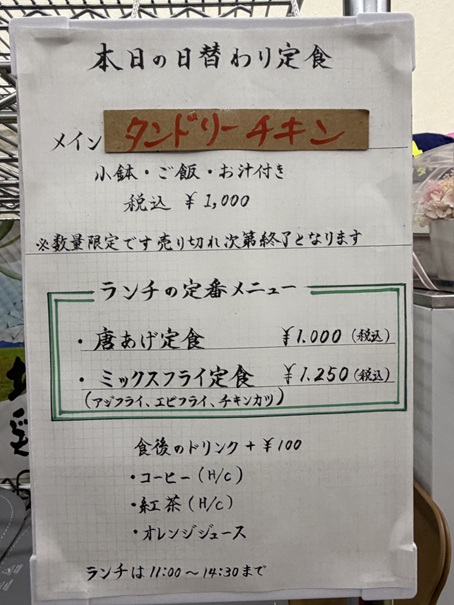 本日の日替わり定食
メイン タンドリーチキン
小鉢・ご飯・お汁付き
税込 ¥1,000
※数量限定です売り切れ次第終了となります
ランチの定番メニュー
・唐あげ定食 ¥1.000(税込)
・ミックスフライ定食 ¥1.250(税込)
(アジフライ、エビフライ、チキンカツ)
食後のドリンク+¥100
・コーヒー(H/C)
・紅茶(H/C)
・オレンジジュース
ランチは11:00~14:30まで